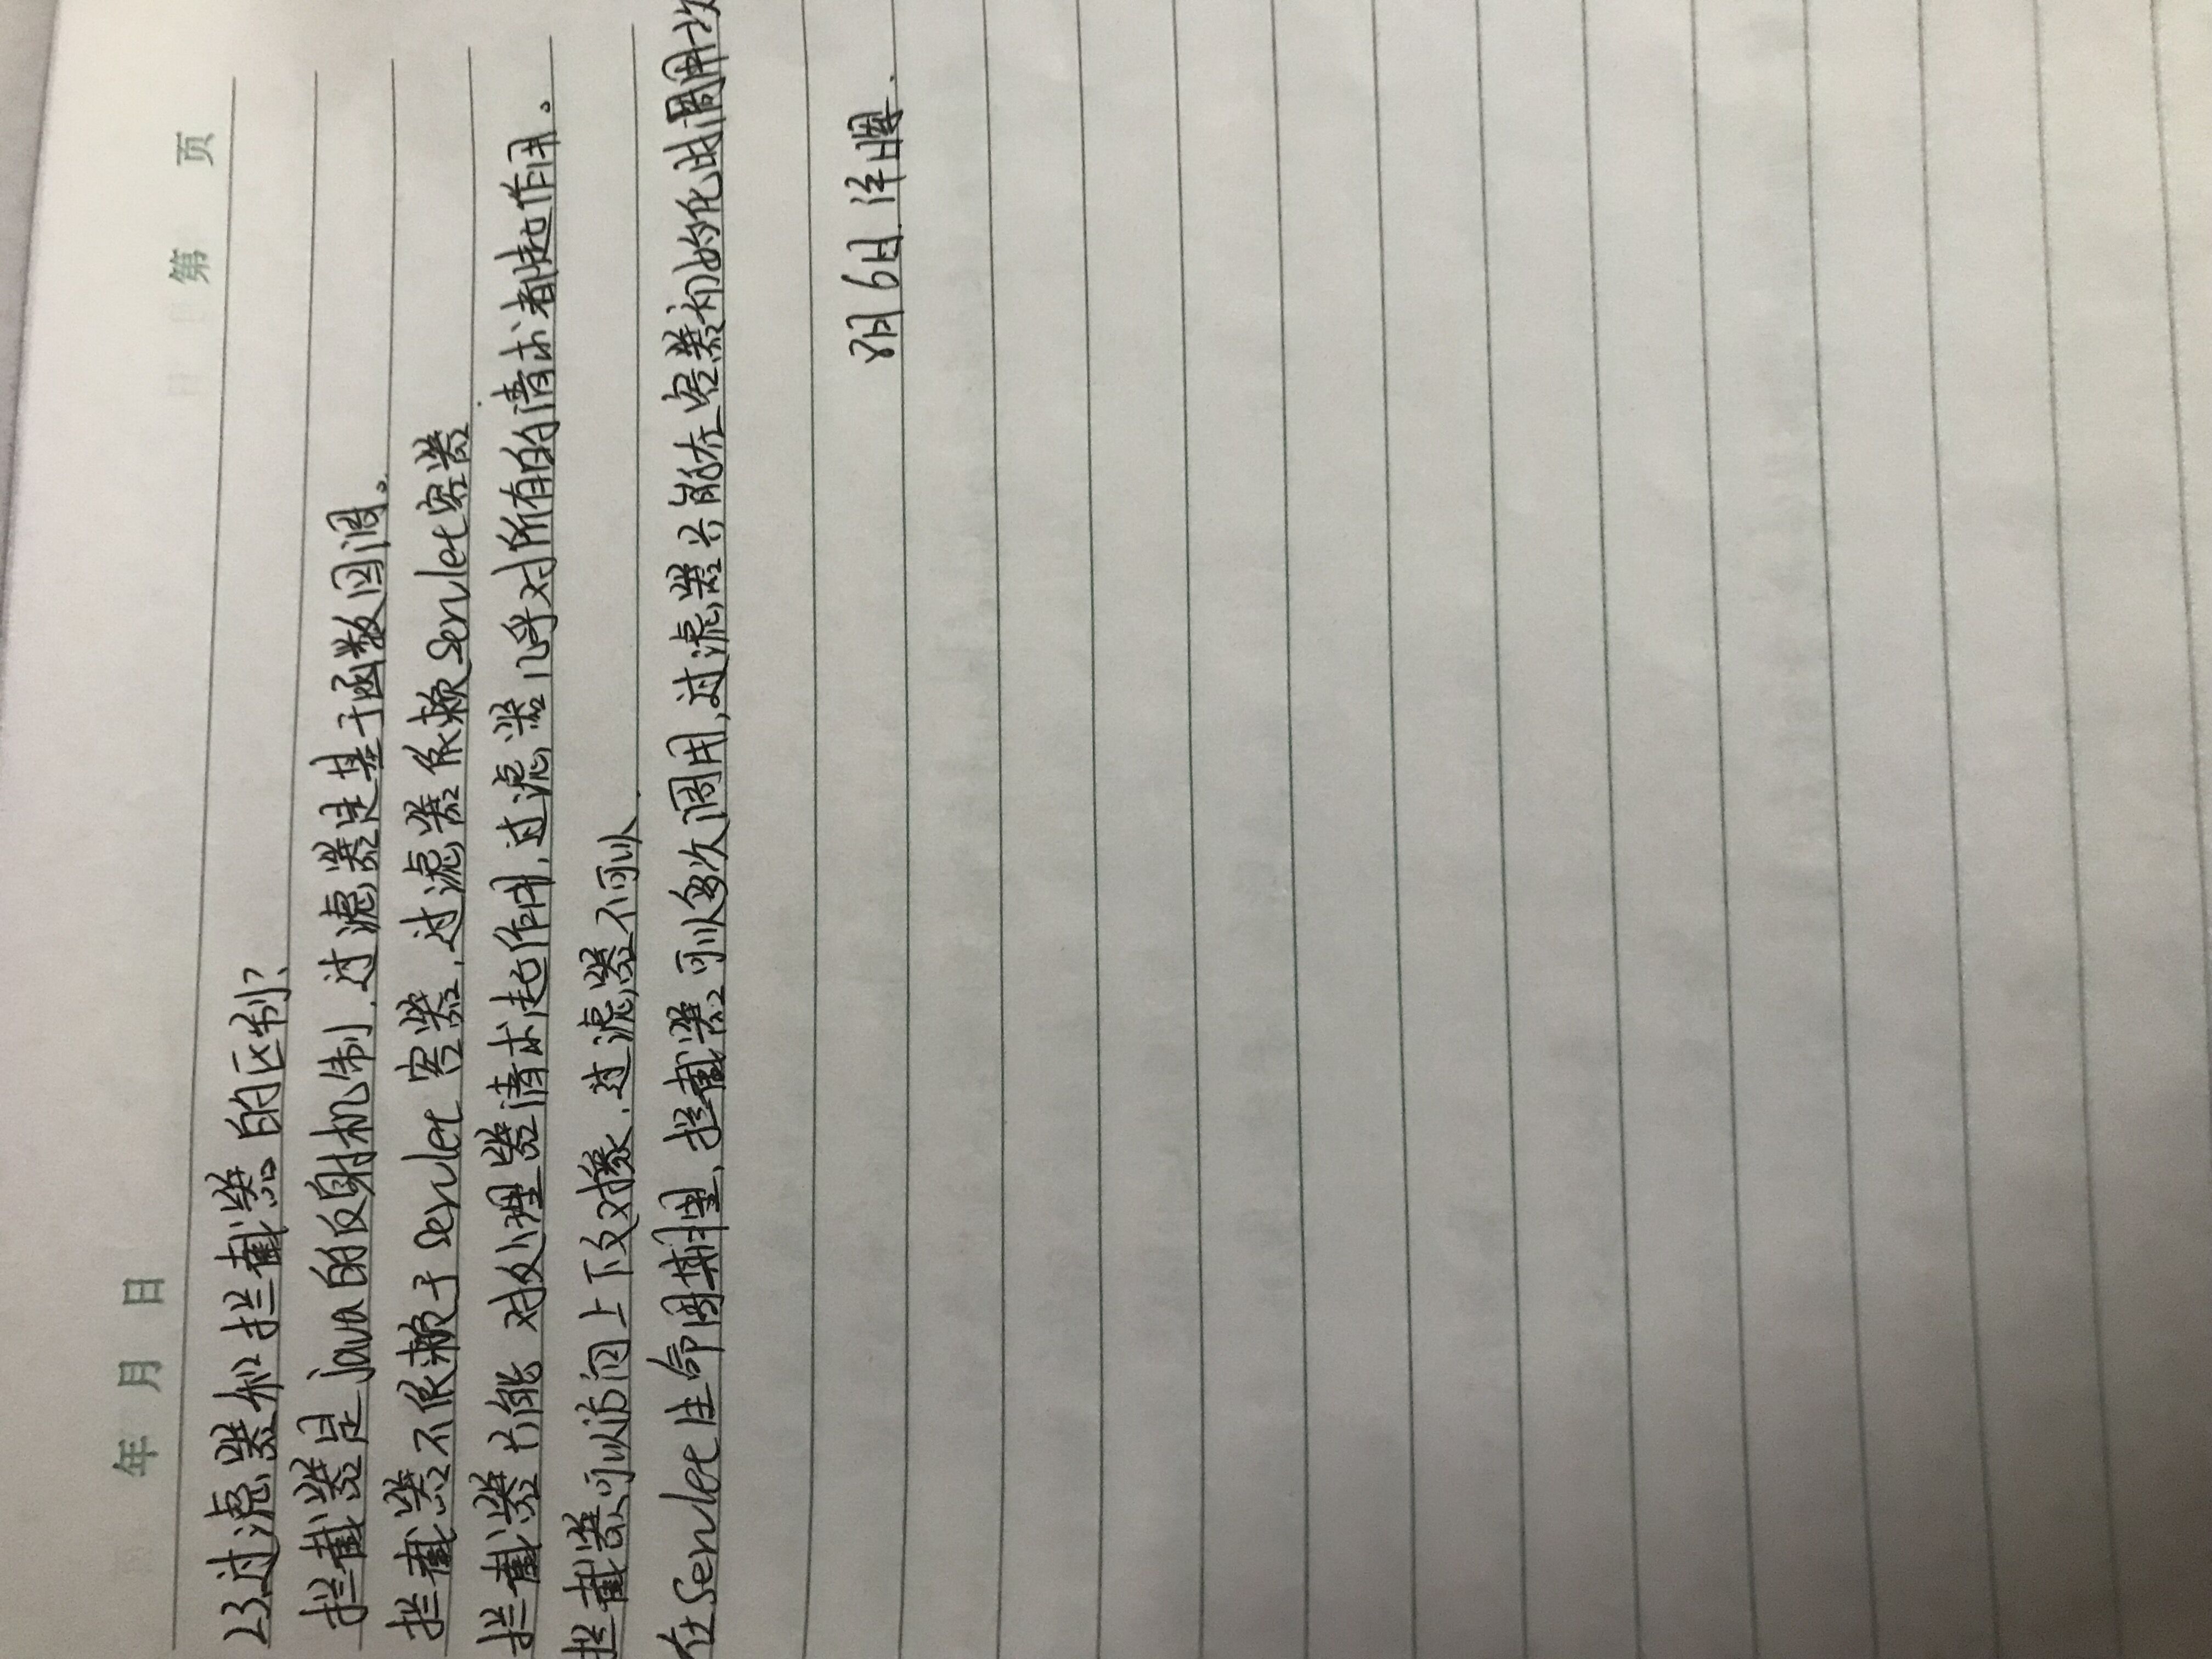 年 月 日
第 页
23.过滤器和拦截器的区别?
拦截器是java的反射机制,过滤器是基于函数回调。
拦截器不依赖于servlet容器,过滤器依赖servlet容器.
拦截器只能对处理器请求起作用,过滤器几乎对所有的请求都起作用。
拦截器可以访问上下文对象,过滤器不可以.
在servlet生命周期里,拦截器可以多次调用,过滤器只能在容器初始化时调用一次
8月6日.